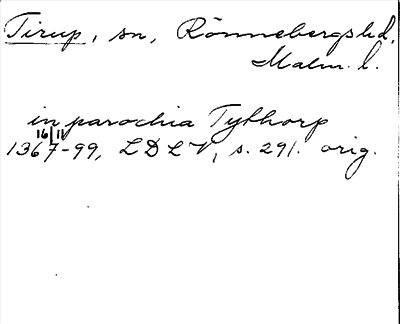 Tirup, sn, Rönnebergs hd.
Malm. l.
in parochia Tythorp
16/11
1367-99, LDLV, s. 291. orig.